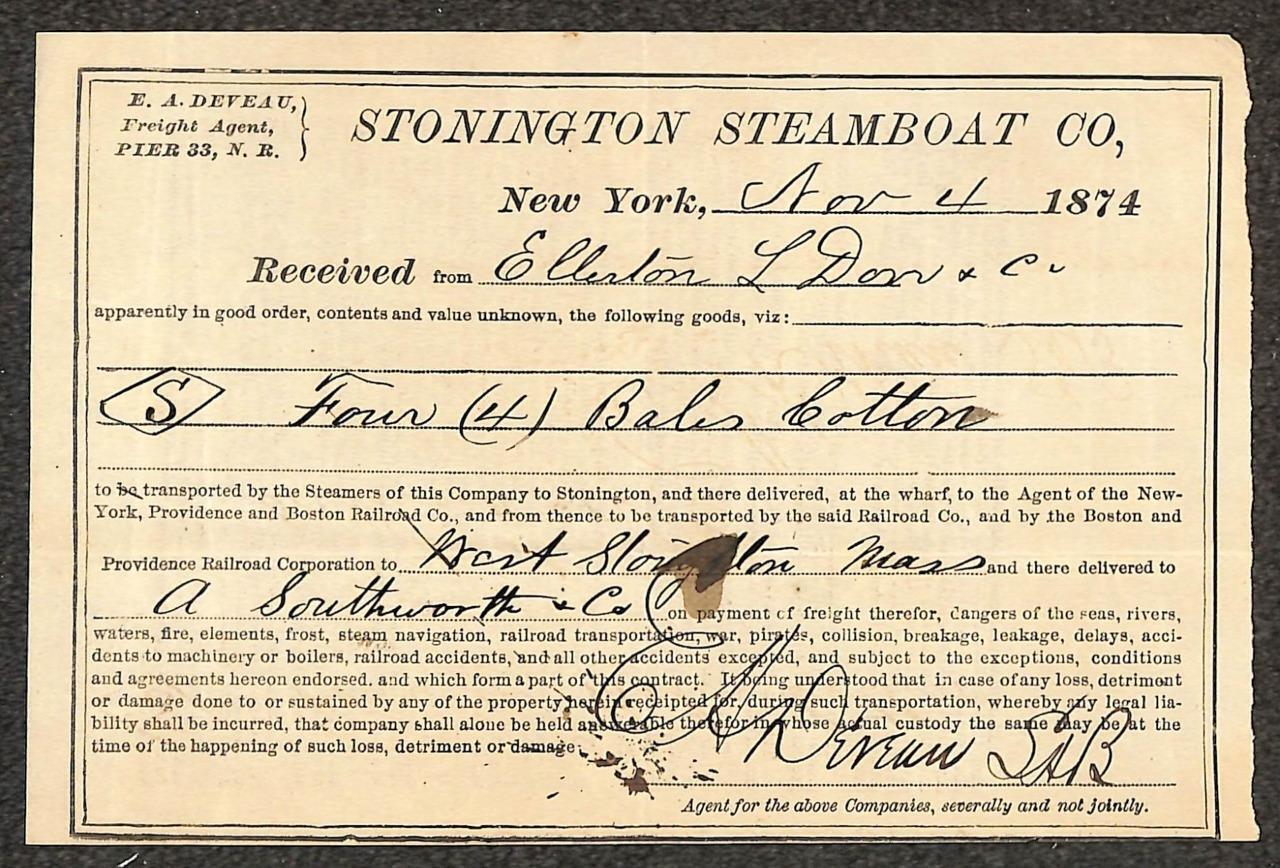 E. A. DEVEAU,
Freight Agent,
PIER 33, N. R.
STONINGTON STEAMBOAT CO,
New York, Nov 4 1874
Received from Ellerton L Dorr & Co
apparently in good order, contents and value unknown, the following goods, viz:
S Four (4) Bales Cotton
to be transported by the Steamers of this Company to Stonington, and there delivered, at the wharf, to the Agent of the New-
York, Providence and Boston Railroad Co., and from thence to be transported by the said Railroad Co., and by the Boston and
Providence Railroad Corporation to West Stoughton Mass and there delivered to
A Southworth & Co on payment of freight therefor, dangers of the seas, rivers,
waters, fire, elements, frost, steam navigation, railroad transportation, war, pirates, collision, breakage, leakage, delays, acci-
dents to machinery or boilers, railroad accidents, and all other accidents excepted, and subject to the exceptions, conditions
and agreements hereon endorsed. and which form a part of this contract. It being understood that in case of any loss, detriment
or damage done to or sustained by any of the property herein receipted for, during such transportation, whereby any legal lia-
bility shall be incurred, that company shall alone be held answerable therefor in whose actual custody the same may be at the
time of the happening of such loss, detriment or damage
E A Deveau SHB
Agent for the above Companies, severally and not jointly.